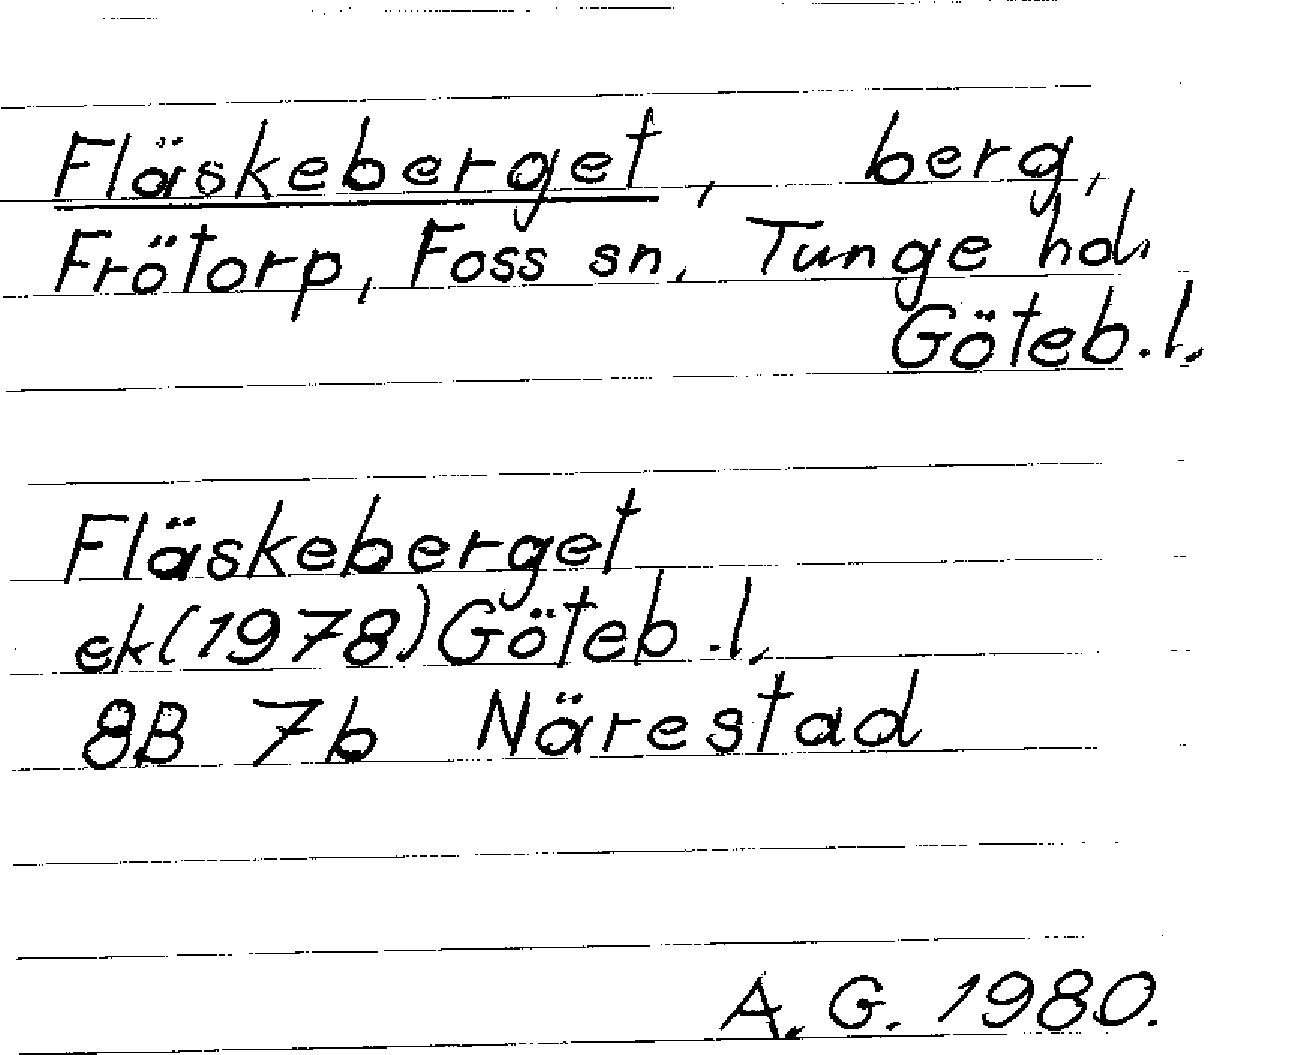 Fläskeberget, berg,
Frötorp, Foss sn, Tunge hd.
Göteb.l.
Fläskeberget
ek(1978)Göteb.l.
8B 7b Närestad
A.G. 1980.